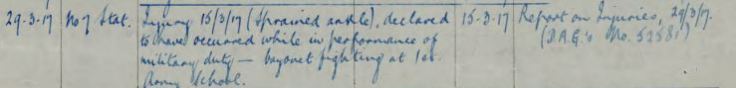 29-3-17 No 7 Stat. Injury 15/3/17 (Sprained ankle), declared 15-3-17 Report on Injuries, 29/3/17.
to have occurred while in performance of (D.A.G.'s No. 52581)
military duty — bayonet fighting at 1st
Army School.